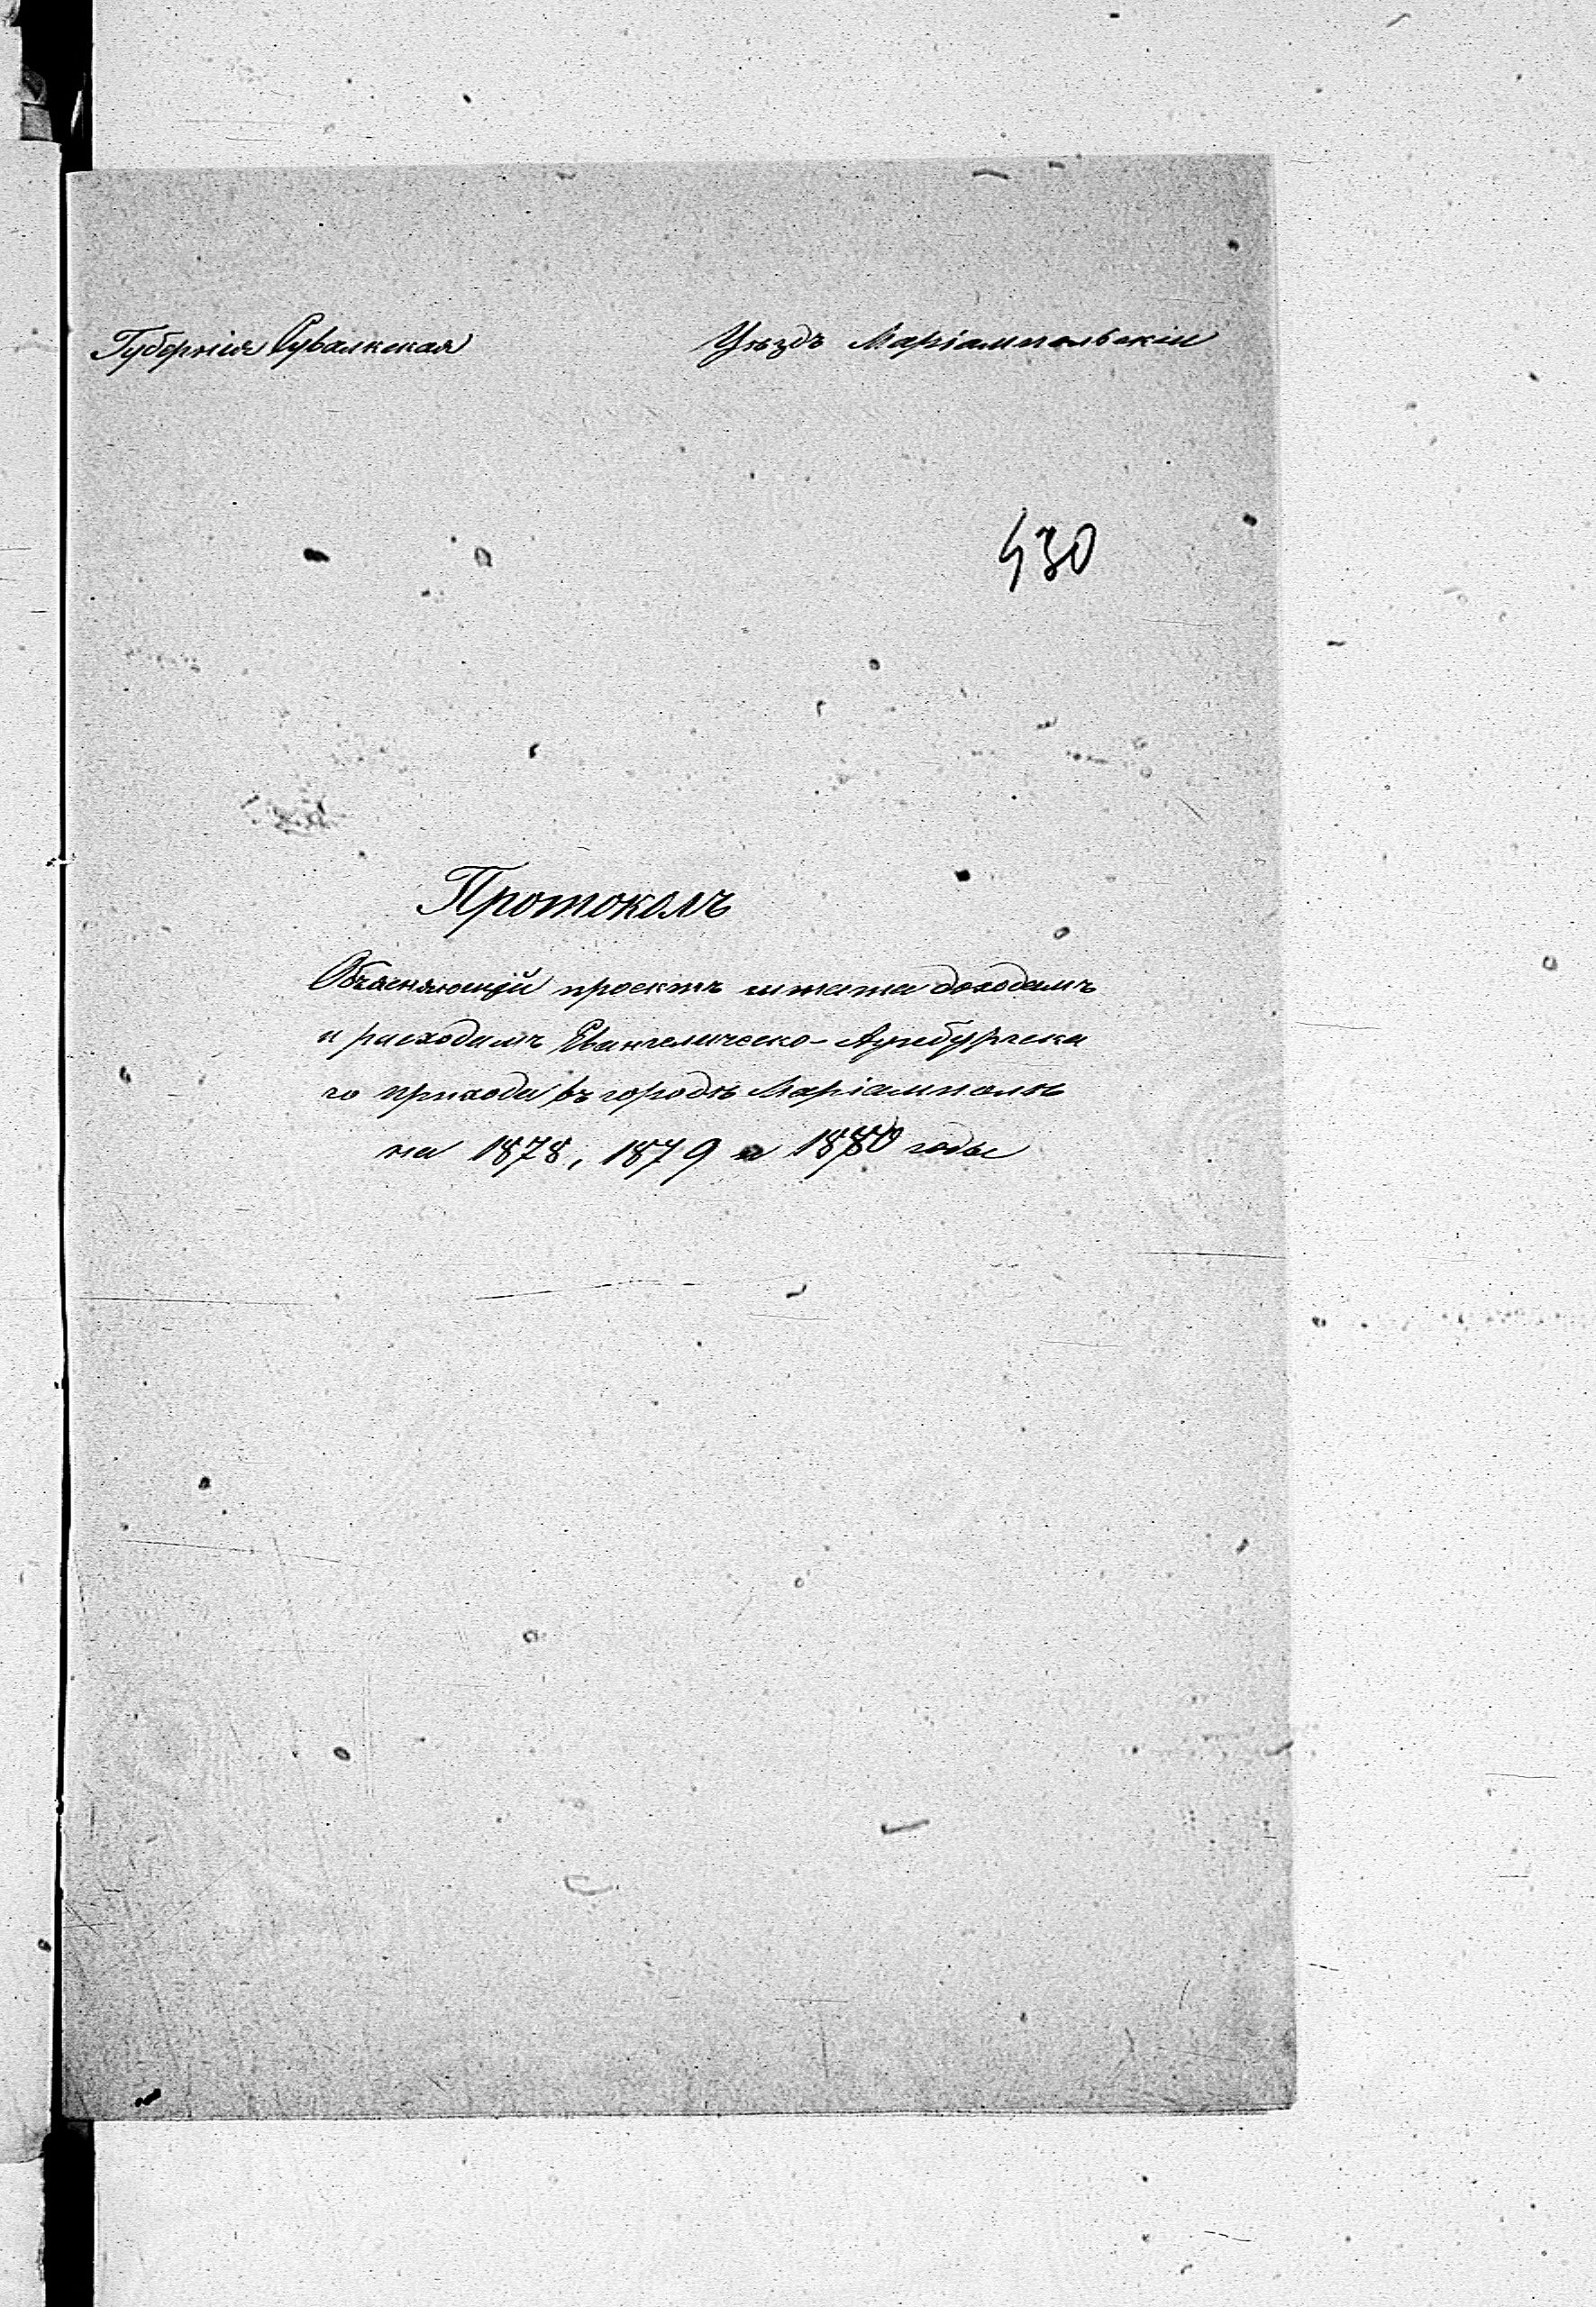 Губернія Сувалкская Уѣздъ Маріампольскій
430
Протоколъ
Объясняющій проектъ штата доходамъ
и расходамъ Евангелическо-Аугсбургска
го прихода въ городѣ Маріамполѣ
на 1878, 1879 и 1880 годы